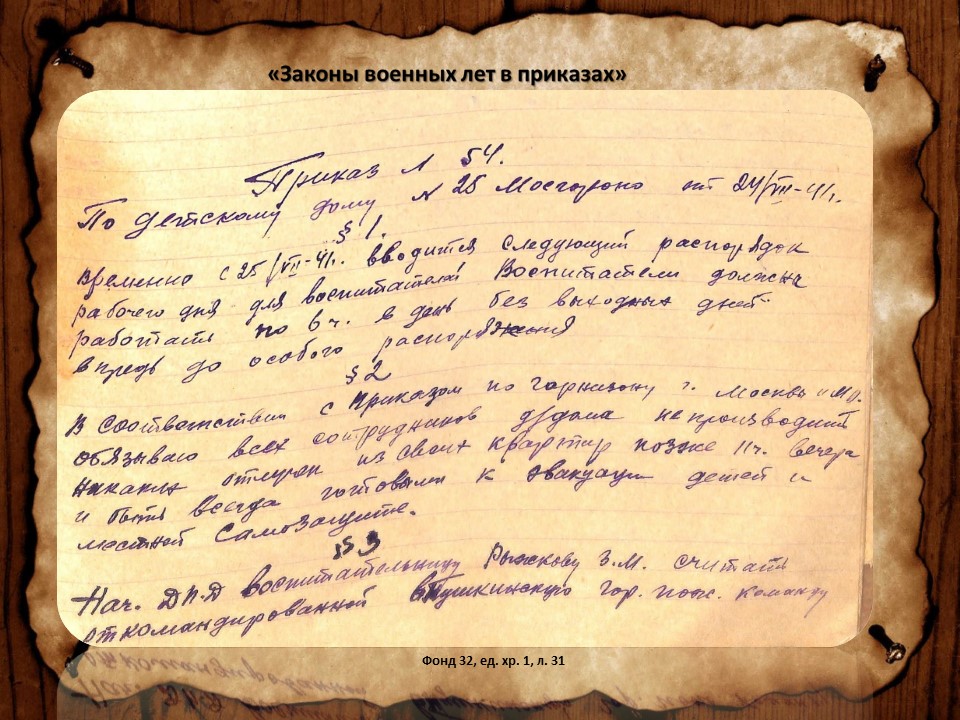 «Законы военных лет в приказах»
Приказ № 54.
По детскому дому № 25 Мосгороно от 24/VII-41.
§ 1.
Временно с 25/VII-41г. вводится следующий распорядок
рабочего дня для воспитателей Воспитатели должны
работать по 6 ч. в день без выходных дней
впредь до особого распоряжения
§ 2
В соответствии с приказом по гарнизону г. Москвы и М.О.
обязываю всех сотрудников д/дома не производить
никаких отлучек из своих квартир позже 11 ч. вечера
и быть всегда готовыми к эвакуации детей и
местной самозащите.
§ 3
Нач. ДПД воспитательницу Рыжкову З.М. считать
откомандированной в Пушкинскую гор. пож. команду
Фонд 32, ед. хр. 1, л. 31